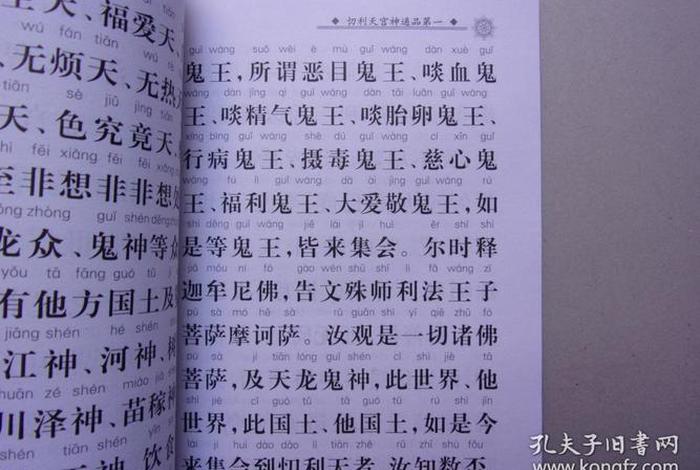 主天、福爱天、
fán tiān wú rè
无烦天、无热天
tiān sè jiū jìng tiān
天、色究竟天、
zhì fēi xiǎng fēi fēi xiǎng
至非想非非想处
lóng zhòng guǐ shén děng
龙众、鬼神等众
yǒu tā fāng guó tǔ jí
有他方国土及
jiāng shén hé shén
江神、河神、树
chuān zé shén miáo jià shén
川泽神、苗稼神
神、饮食
忉利天宫神通品第一
guǐ wáng suǒ wèi è mù guǐ wáng dàn xuè guǐ
鬼王,所谓恶目鬼王、啖血鬼
wáng dàn jīng qì guǐ wáng dàn tāi luǎn guǐ wáng
王、啖精气鬼王、啖胎卵鬼王、
xíng bìng guǐ wáng shè dú guǐ wáng cí xīn guǐ
行病鬼王、摄毒鬼王、慈心鬼
wáng fú lì guǐ wáng dà ài jìng guǐ wáng rú
王、福利鬼王、大爱敬鬼王,如
shì děng guǐ wáng jiē lái jí huì ěr shí shì
是等鬼王,皆来集会。尔时释
jiā móu ní fó gào wén shū shī lì fǎ wáng zǐ
迦牟尼佛,告文殊师利法王子
pú sà mó hē sà rǔ guān shì yí qiè zhū fó
菩萨摩诃萨。汝观是一切诸佛
pú sà jí tiān lóng guǐ shén cǐ shì jiè tā
菩萨,及天龙鬼神,此世界、他
shì jiè cǐ guó tǔ tā guó tǔ rú shì jīn
世界,此国土、他国土,如是今
lái jí huì dào dāo lì tiān zhě rǔ zhī shù fǒu
来集会到忉利天者,汝知数不
孔夫子旧书网
www.kongfz.com